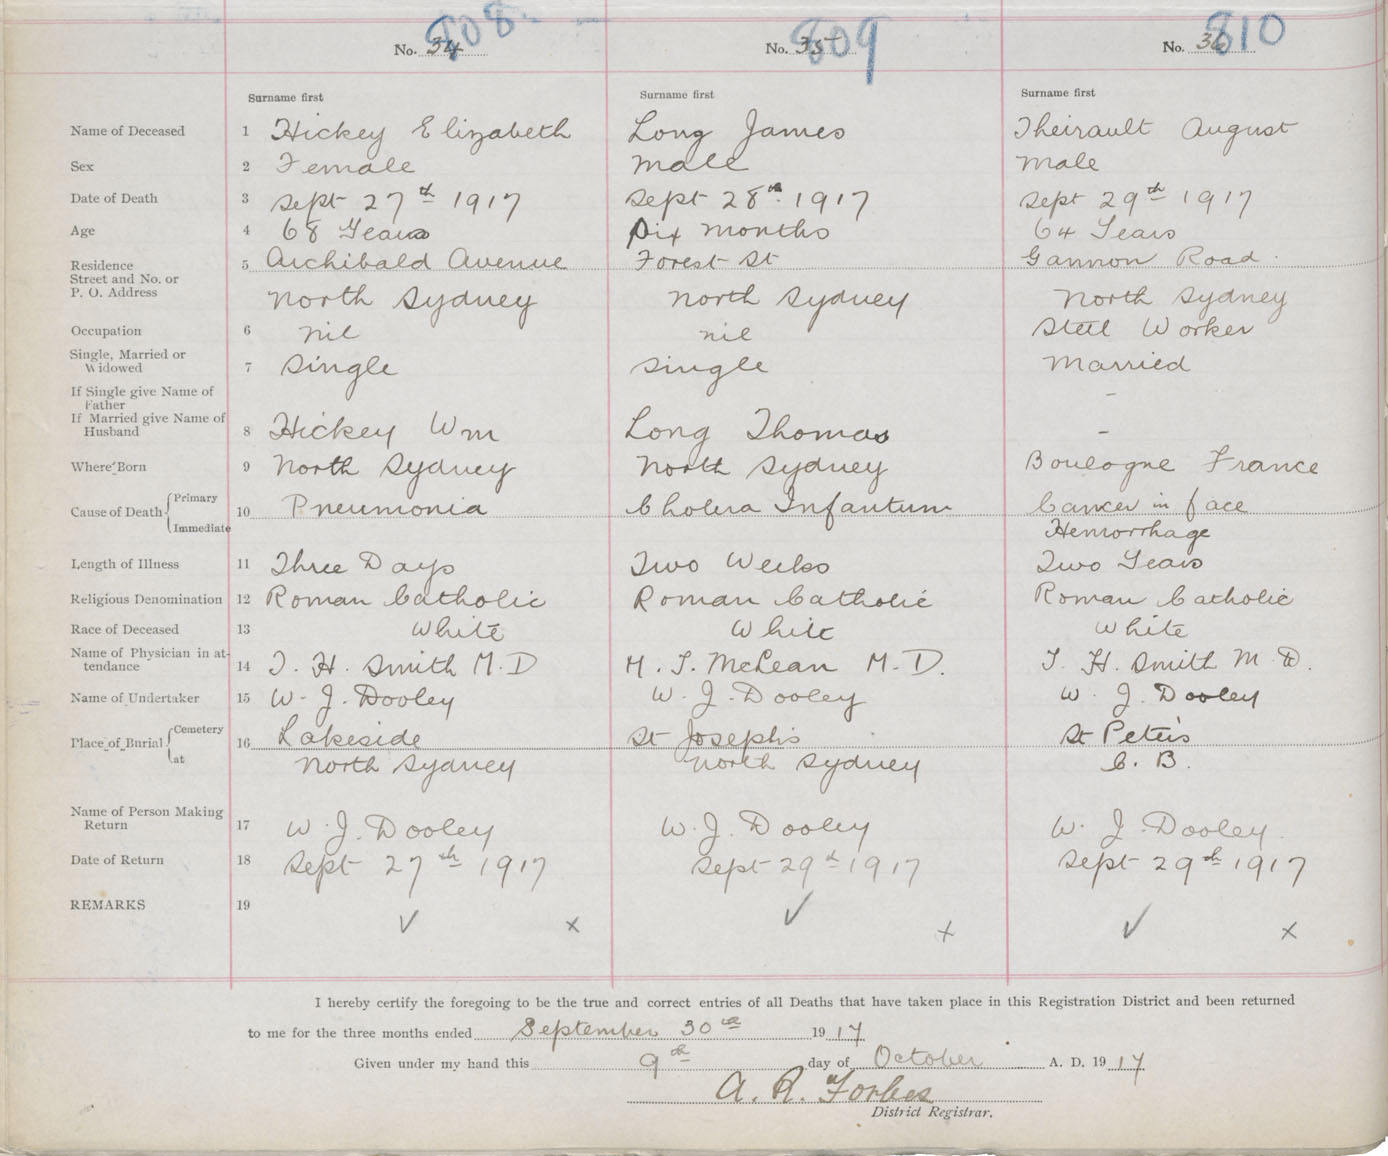 808 809 810
No. 34 No. 35 No. 36
Surname first Surname first Surname first
Name of Deceased 1 Hickey Elizabeth Long James Theirault August
Sex 2 Female male male
Date of Death 3 Sept 27th 1917 Sept 28th 1917 Sept 29th 1917
Age 4 68 Years Six months 64 Years
Residence 5 Archibald Avenue Forest St Gannon Road
Street and No. or
P. O. Address North Sydney North Sydney North Sydney
Occupation 6 nil nil Steel Worker
Single, Married or
Widowed 7 Single Single Married
If Single give Name of
Father -
If Married give Name of
Husband 8 Hickey Wm Long Thomas -
Where Born 9 North Sydney North Sydney Boulogne France
Cause of Death { Primary
10 Pneumonia Cholera Infantum Cancer in face
Immediate Hemorrhage
Length of Illness 11 Three Days Two Weeks Two Years
Religious Denomination 12 Roman Catholic Roman Catholic Roman Catholic
Race of Deceased 13 White White White
Name of Physician in at-
tendance 14 T. H. Smith M.D M. T. McLean M.D. T. H. Smith M.D.
Name of Undertaker 15 W. J. Dooley W. J. Dooley W. J. Dooley
Place of Burial { Cemetery 16 Lakeside St Joseph's St Peter's
at North Sydney North Sydney C. B.
Name of Person Making
Return 17 W. J. Dooley W. J. Dooley W. J. Dooley
Date of Return 18 Sept 27th 1917 Sept 29th 1917 Sept 29th 1917
REMARKS 19
✓ x ✓ x ✓ x
I hereby certify the foregoing to be the true and correct entries of all Deaths that have taken place in this Registration District and been returned
to me for the three months ended September 30th 1917
Given under my hand this 9th day of October A. D. 1917
A. R. Forbes
District Registrar.